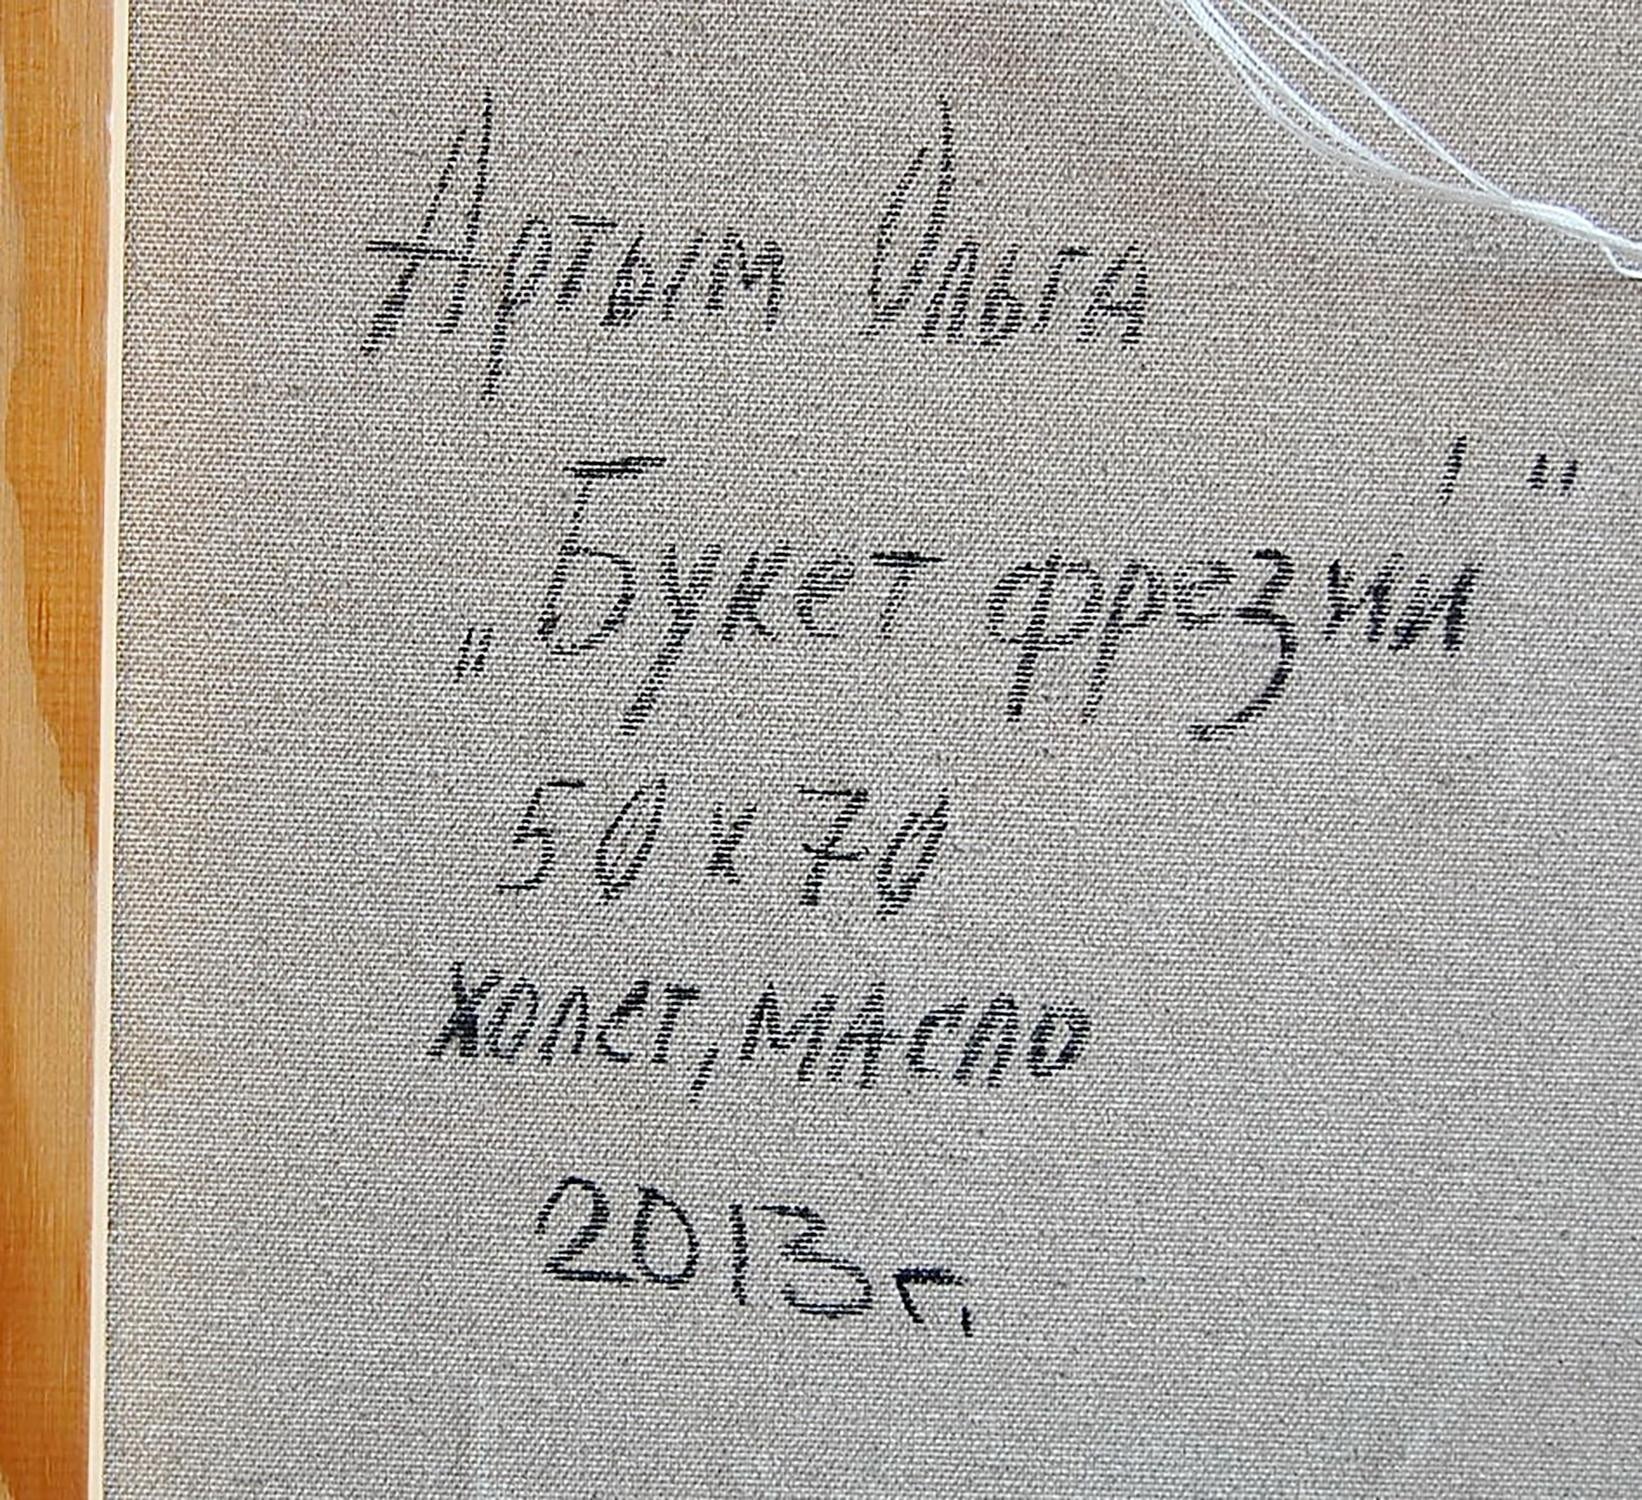 Артым Ольга
„Букет фрезий"
50 х 70
холст, масло
2013 г.